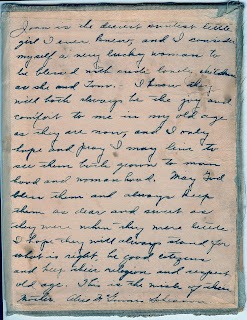 is the dearest sweetest little
girl I ever knew, and I consider
myself a very lucky woman to
be blessed with such lovely children
as she and I know they
will both always be the joy and
comfort to me in my old age
as they are now, and I only
hope and pray I may live to
see them both grown to man
hood and woman hood. May God
bless them and always keep
them as dear and sweet as
they were when they were little
I hope they will always stand for
what is right, be good citizens
and keep their religion and respect
old age. This is the wish of their
Mother.